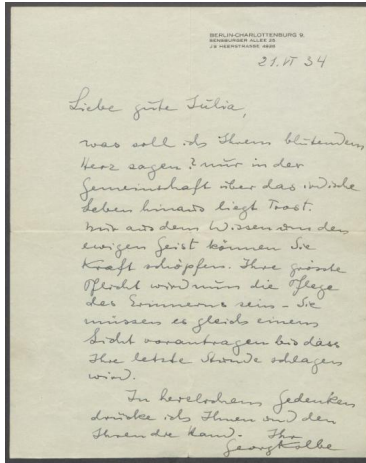 BERLIN-CHARLOTTENBURG 9,
SENSBURGER ALLEE 25
J 9 HEERSTRASSE
21. VI 34
Liebe gute Julia,
was soll ich Ihrem blutenden
Herz sagen? nur in der
Gemeinschaft über das irdische
Leben hinaus liegt Trost.
Nur aus dem Wissen um den
ewigen Geist können Sie
Kraft schöpfen. Ihre grösste
Pflicht wird nun die Pflege
des Erinnerns sein – Sie
müssen es gleich einem
Licht vorantragen bis dass
Ihre letzte Stunde schlagen
wird.
In herzlichem Gedenken
drücke ich Ihnen und den
Ihren die Hand. Ihr
Georg Kolbe